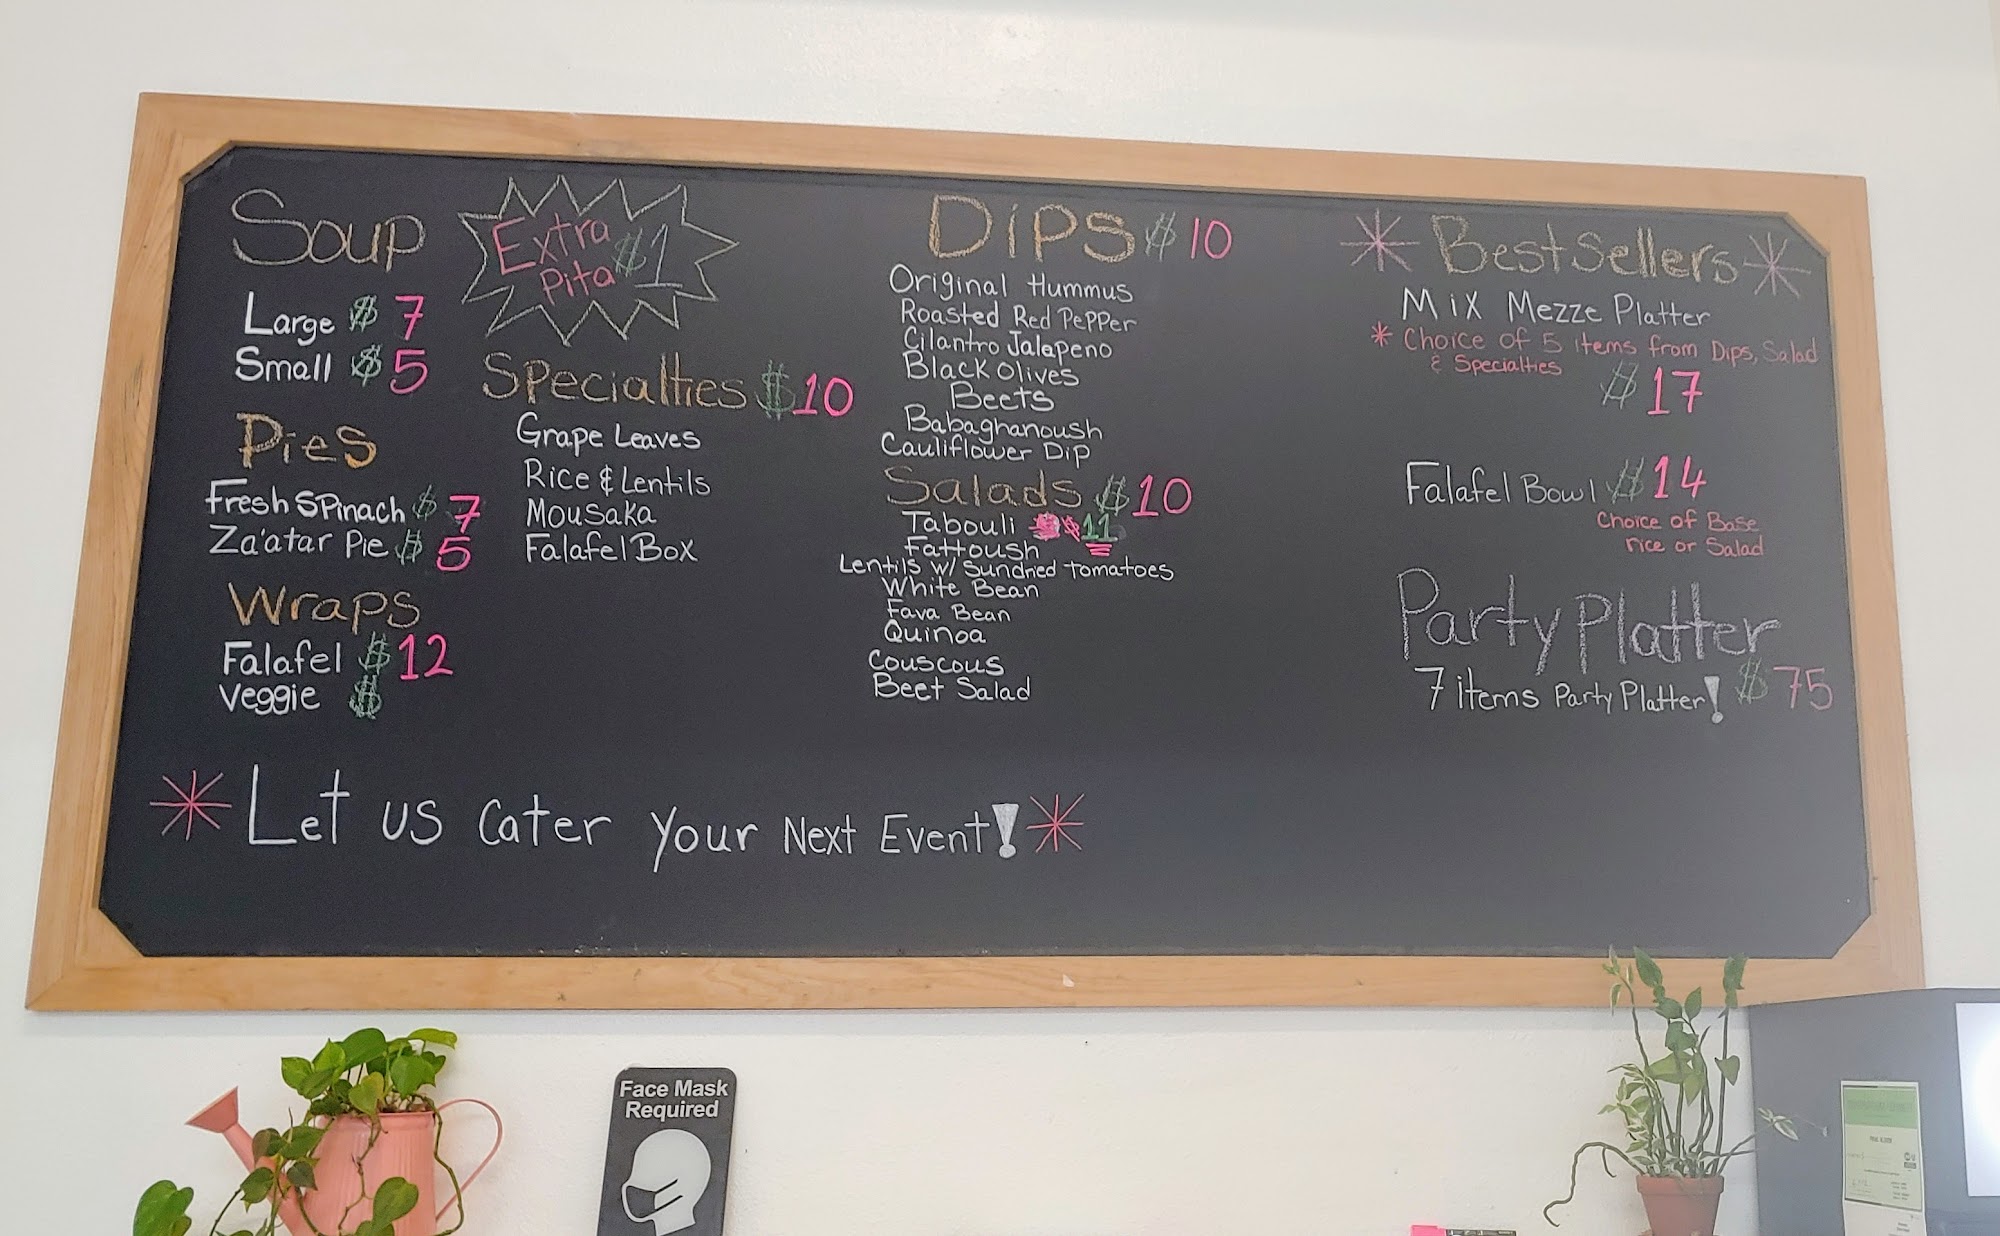 Soup
Large $ 7
Small $ 5
Extra
Pita $1
Pies
Fresh Spinach $ 7
Za'atar Pie $ 5
Wraps
Falafel $ 12
Veggie $
Specialties $10
Grape Leaves
Rice & Lentils
Mousaka
Falafel Box
Dips $ 10
Original Hummus
Roasted Red Pepper
Cilantro Jalapeno
Black Olives
Beets
Babaghanoush
Cauliflower Dip
Salads $10
Tabouli $ 11
Fattoush
Lentils w/ Sundried Tomatoes
White Bean
Fava Bean
Quinoa
Couscous
Beet Salad
* Best Sellers *
Mix Mezze Platter
* Choice of 5 items from Dips, Salad
& Specialties
$ 17
Falafel Bowl $ 14
Choice of Base
rice or Salad
Party Platter
7 items Party Platter! $ 75
* Let us cater your Next Event! *
Face Mask
Required